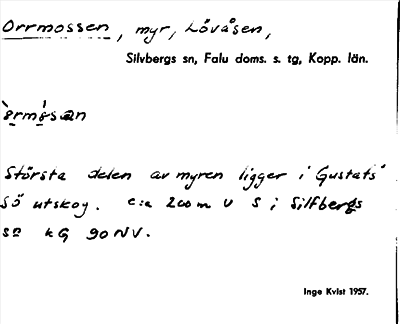 Orrmossen, myr, Lövåsen,
Silvbergs sn, Falu doms. s. tg, Kopp. län.
Största delen av myren ligger i Gustafs
Sö utskog. c:a 200 m V S i Silfbergs
sn kG 90 NV.
Inge Kvist 1957.